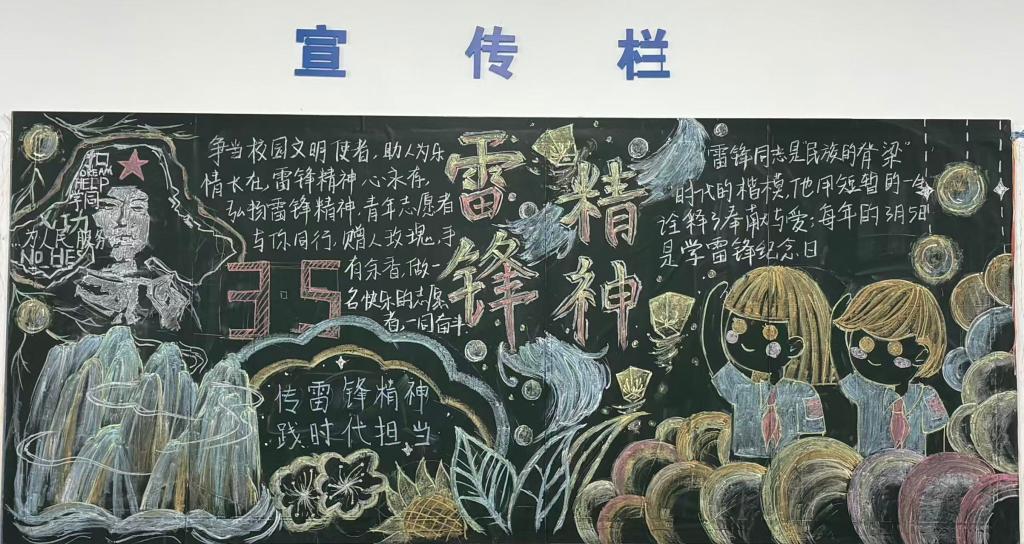 宣传栏
争当校园文明使者,助人为乐
情长在,雷锋精神心永存,
弘扬雷锋精神,青年志愿者
与你同行,赠人玫瑰,手
有余香,做一
名快乐的志愿
者,一同奋斗
雷锋
精神
雷锋同志是"民族的脊梁"
时代的楷模,他用短暂的一生
诠释了奉献与爱;每年的3月5日
是学雷锋纪念日
DREAM
HELP
为人民服务
NO HES
3.5
传雷锋精神
践时代担当